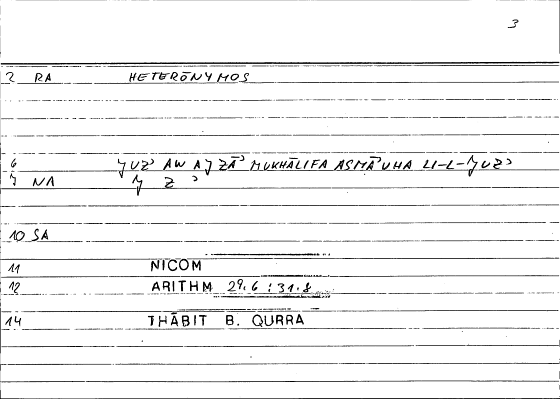 3
2 RA HETERŌNYMOS
6 JUZʾ AW AJZĀʾ MUKHĀLIFA ASMĀʾUHA LI-L-JUZʾ
7 NA J Z ʾ
10 SA
11 NICOM
12 ARITHM 29.6 : 31.8
14 THĀBIT B. QURRA